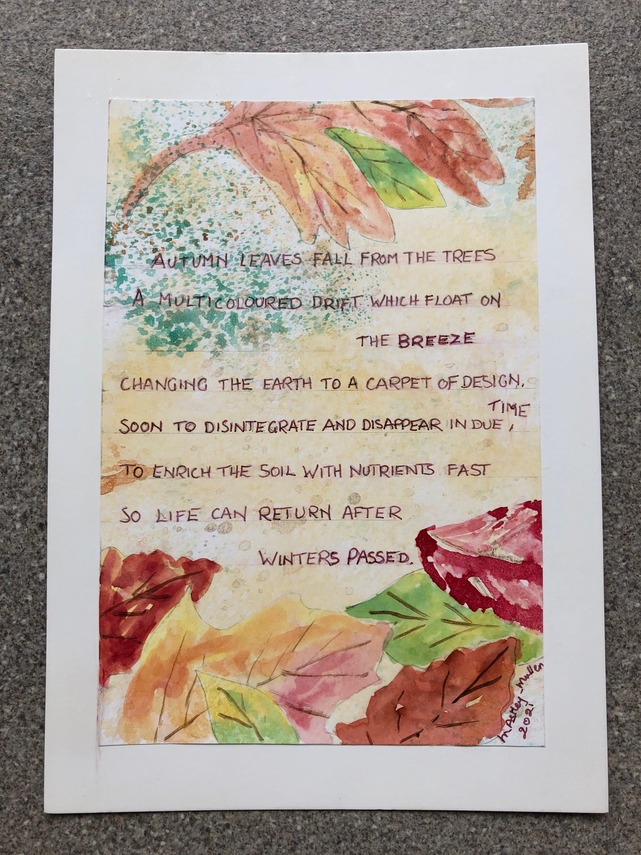 AUTUMN LEAVES FALL FROM THE TREES
A MULTICOLOURED DRIFT WHICH FLOAT ON
THE BREEZE
CHANGING THE EARTH TO A CARPET OF DESIGN.
SOON TO DISINTEGRATE AND DISAPPEAR IN DUE TIME,
TO ENRICH THE SOIL WITH NUTRIENTS FAST
SO LIFE CAN RETURN AFTER
WINTERS PASSED.
Mullen
2021